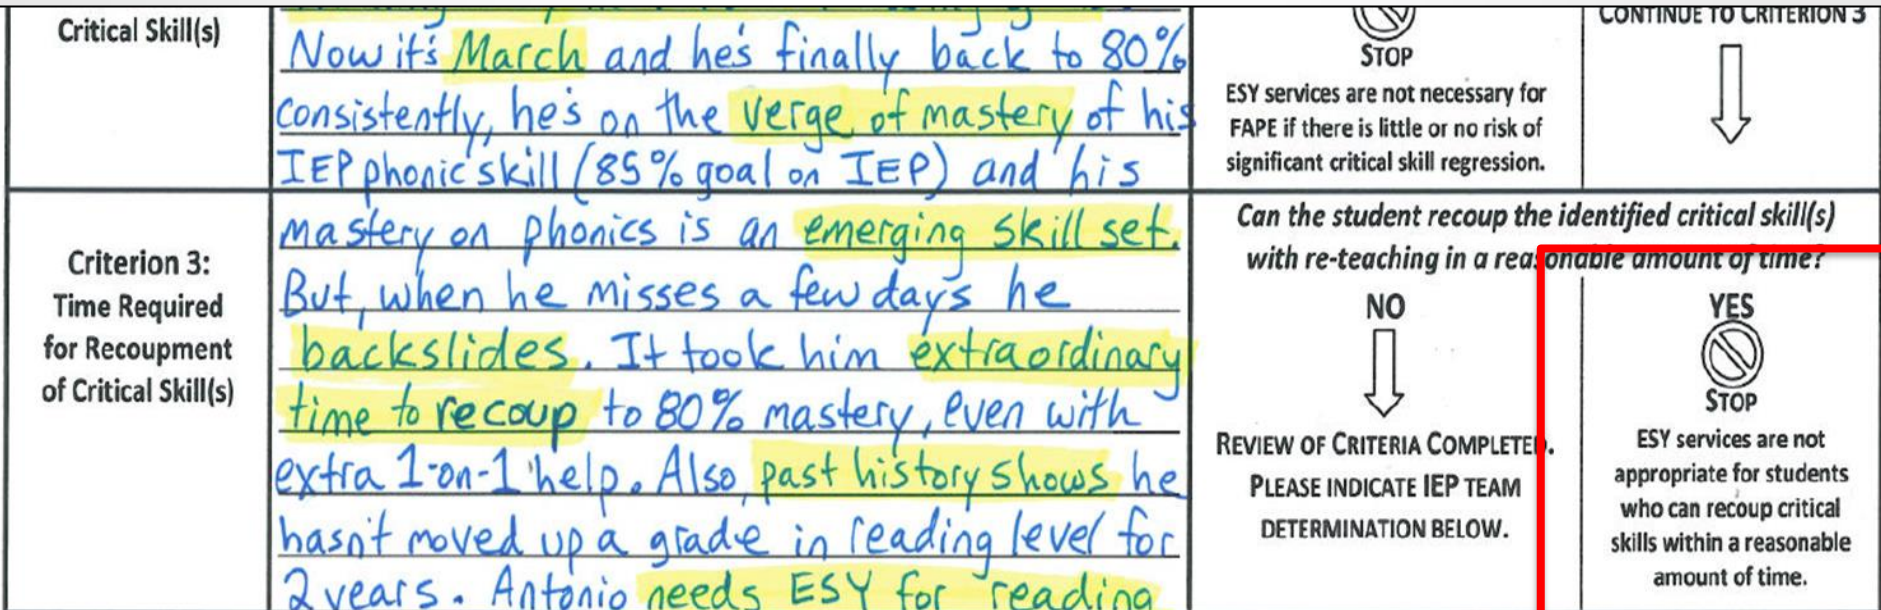 Critical Skill(s)
Now it's March and he's finally back to 80%
consistently, he's on the verge of mastery of his
IEP phonic skill (85% goal on IEP) and his
STOP
ESY services are not necessary for
FAPE if there is little or no risk of
significant critical skill regression.
CONTINUE TO CRITERION 3
Criterion 3:
Time Required
for Recoupment
of Critical Skill(s)
mastery on phonics is an emerging skill set.
But, when he misses a few days he
backslides. It took him extraordinary
time to recoup to 80% mastery, even with
extra 1-on-1 help. Also, past history shows he
hasn't moved up a grade in reading level for
2 years. Antonio needs ESY for reading
Can the student recoup the identified critical skill(s)
with re-teaching in a reasonable amount of time?
NO
REVIEW OF CRITERIA COMPLETED.
PLEASE INDICATE IEP TEAM
DETERMINATION BELOW.
YES
STOP
ESY services are not
appropriate for students
who can recoup critical
skills within a reasonable
amount of time.